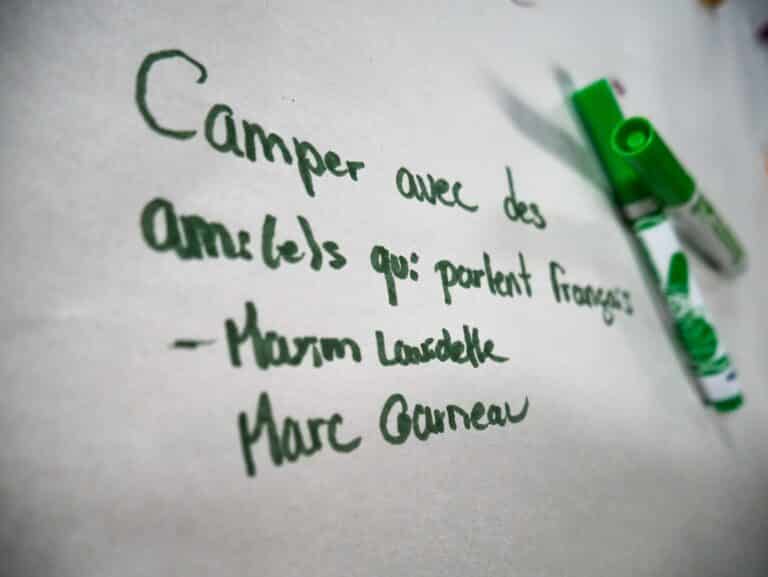 Camper avec des
ami(e)s qui parlent français
- Maxim
Marc Garneau